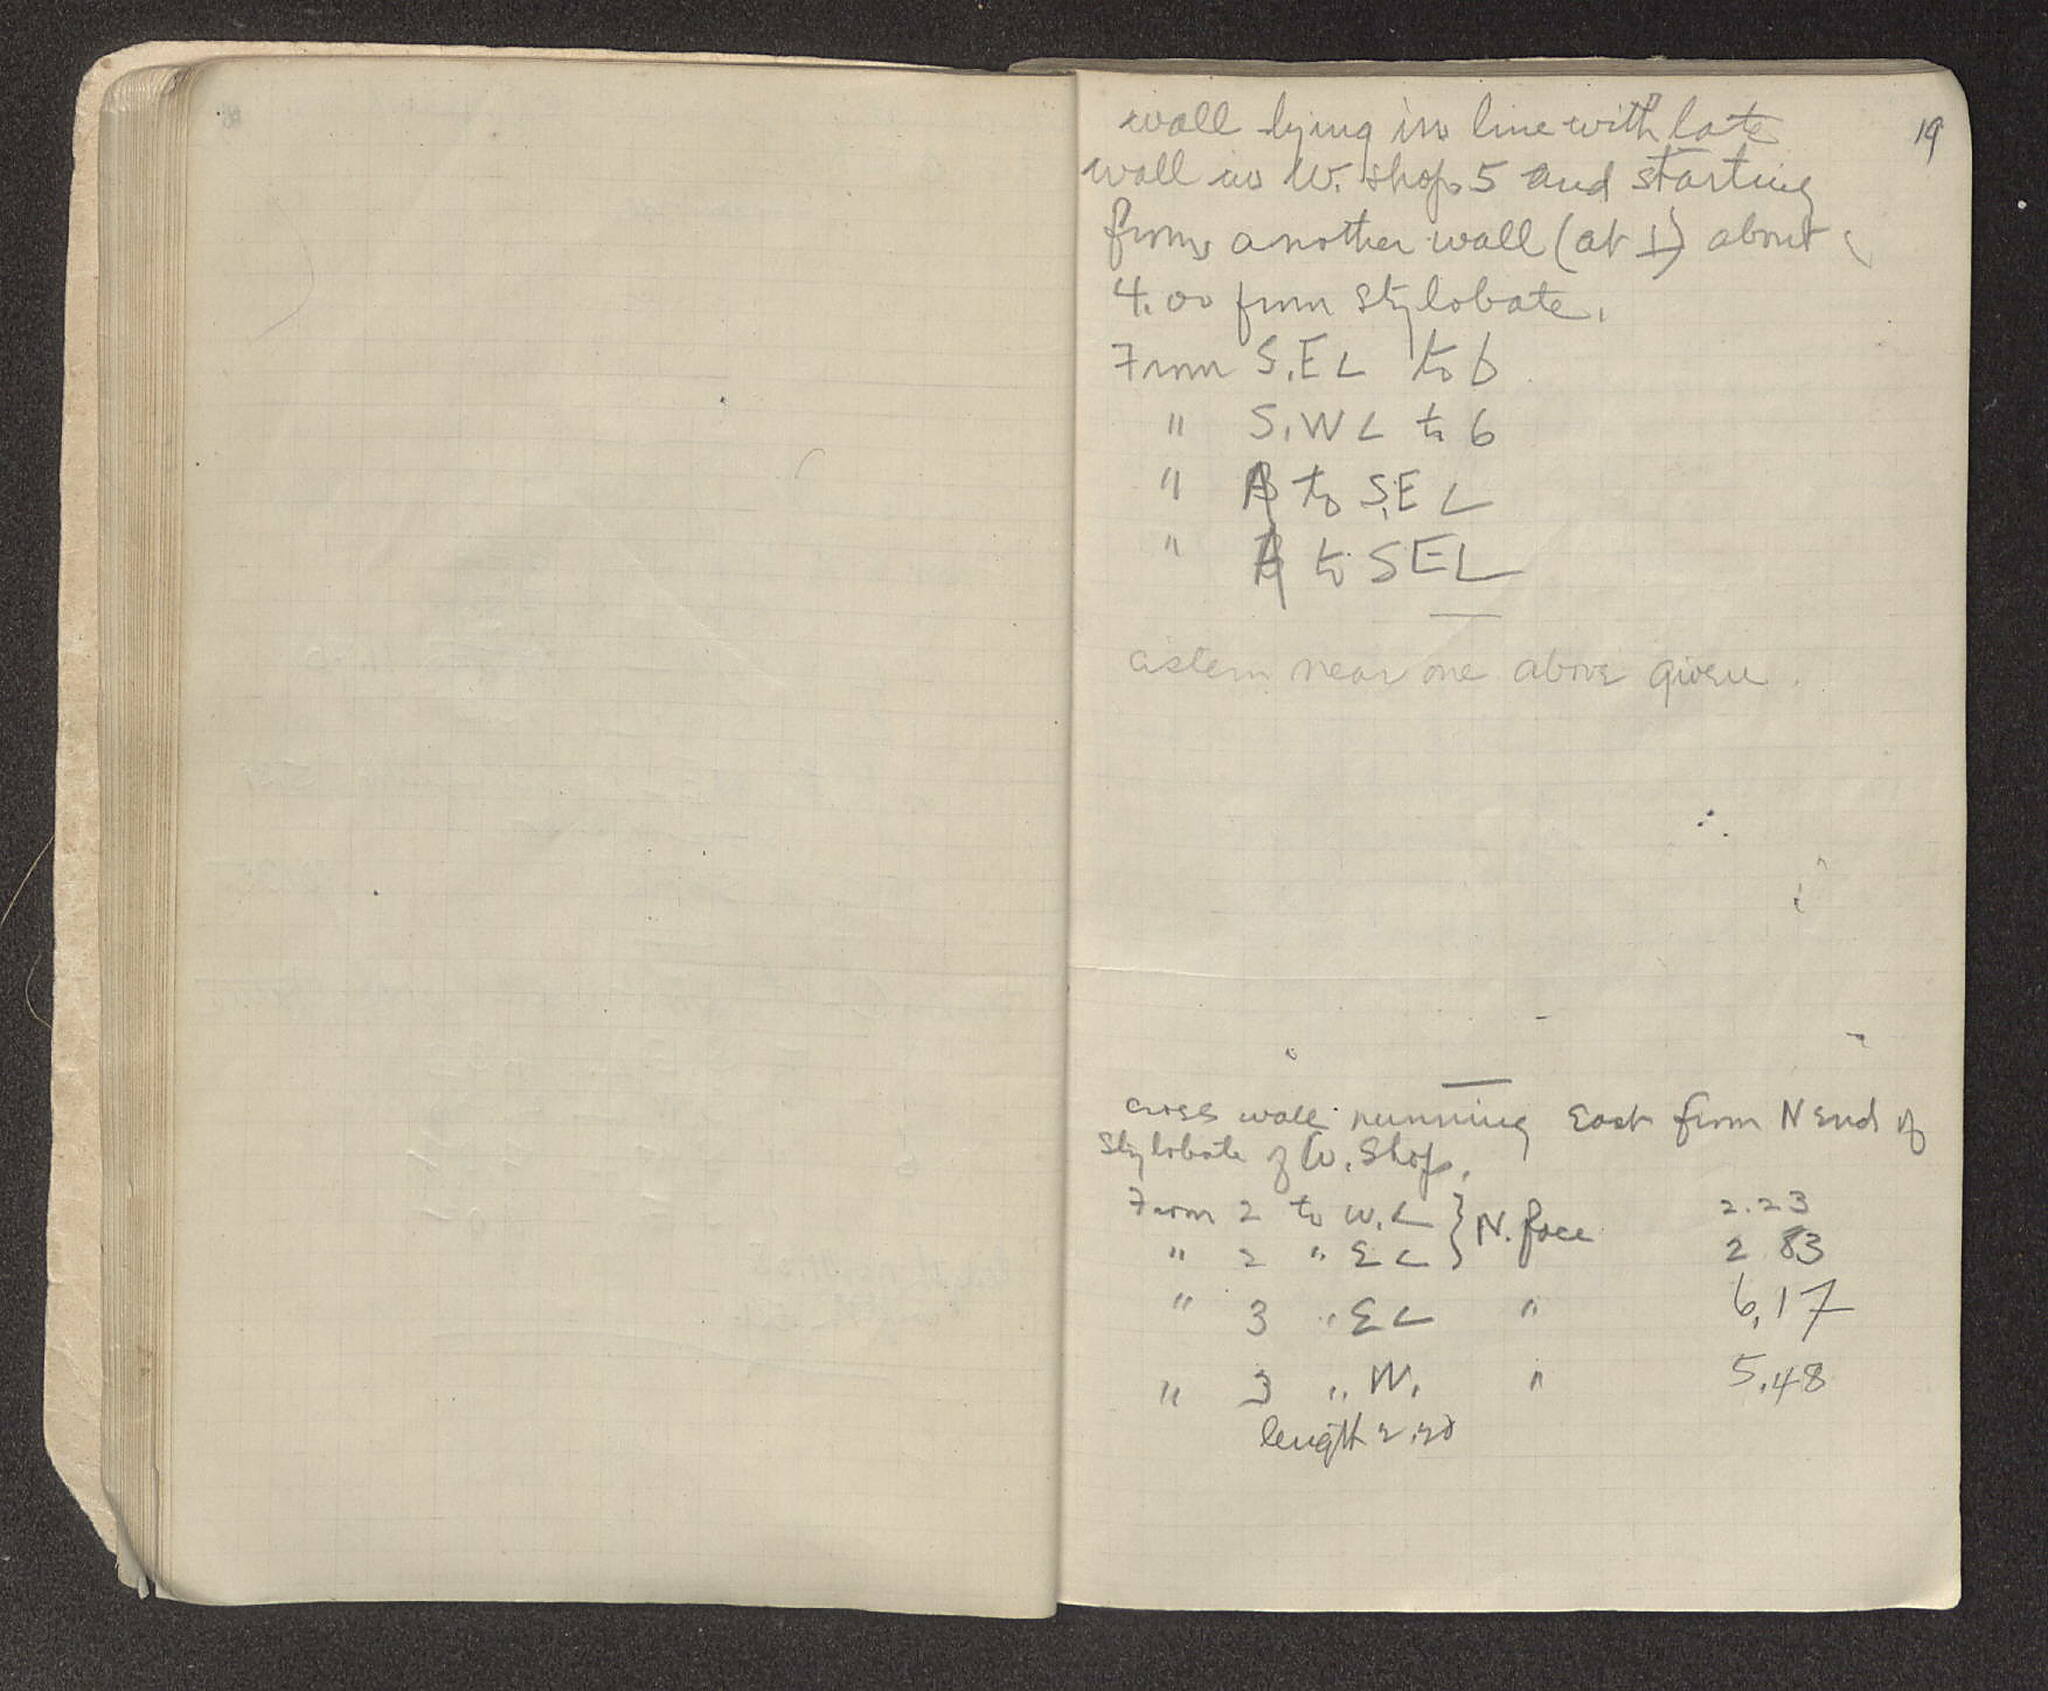 19
wall lying in line with late
wall in W. shop 5 and starting
from another wall (at ⊥) about
4.00 from stylobate.
From S.E∠ to 6
" S.W∠ to 6
" to S.E∠
" to SE∠
cistern near one above given.
cross wall running East from N End of
Stylobate of W. Shop.
From 2 to W.∠ } N. face 2.23
" 2 " E∠ 2 83
" 3 " E∠ " 6.17
" 3 " W. " 5.48
length 2.20